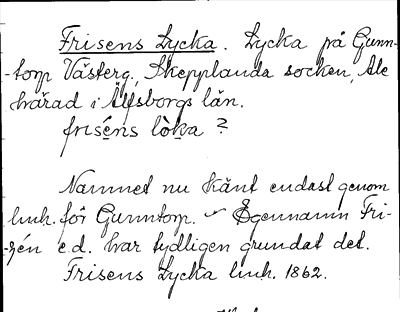 Frisens Lycka. Lycka på Gunn-
-torp Västerg., Skepplanda socken, Ale
härad i Älfsborgs län.
friséns lò̱ka ?
Namnet nu känt endast genom
luh. för Gunntorp. – Egennamn Fri-
-zén e.d. har tydligen grundat det.
Frisens Lycka luh. 1862.